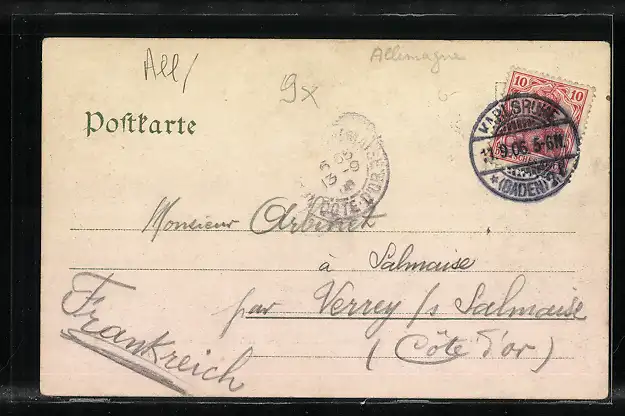 All/
Allemagne
9x
Postkarte
10 10
KARLSRUHE
11.9.06. 5-6N.
*(BADEN)2
CÔTE-D'OR
Monsieur Arbinet
à Salmaise
par Verrey s/ Salmaise
(Côte d'or)
Frankreich